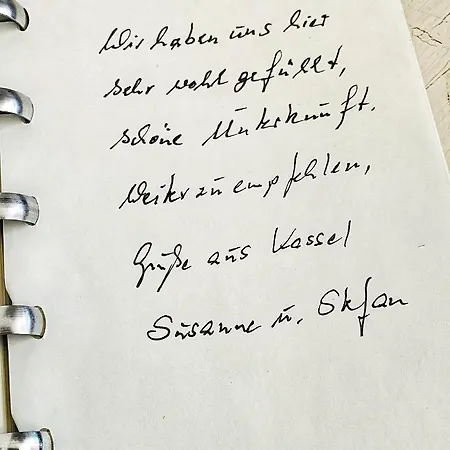 Wir haben uns hier
sehr wohl gefühlt,
schöne Unterkunft.
Weiterzuempfehlen,
Grüße aus Kassel
Susanne u. Stefan